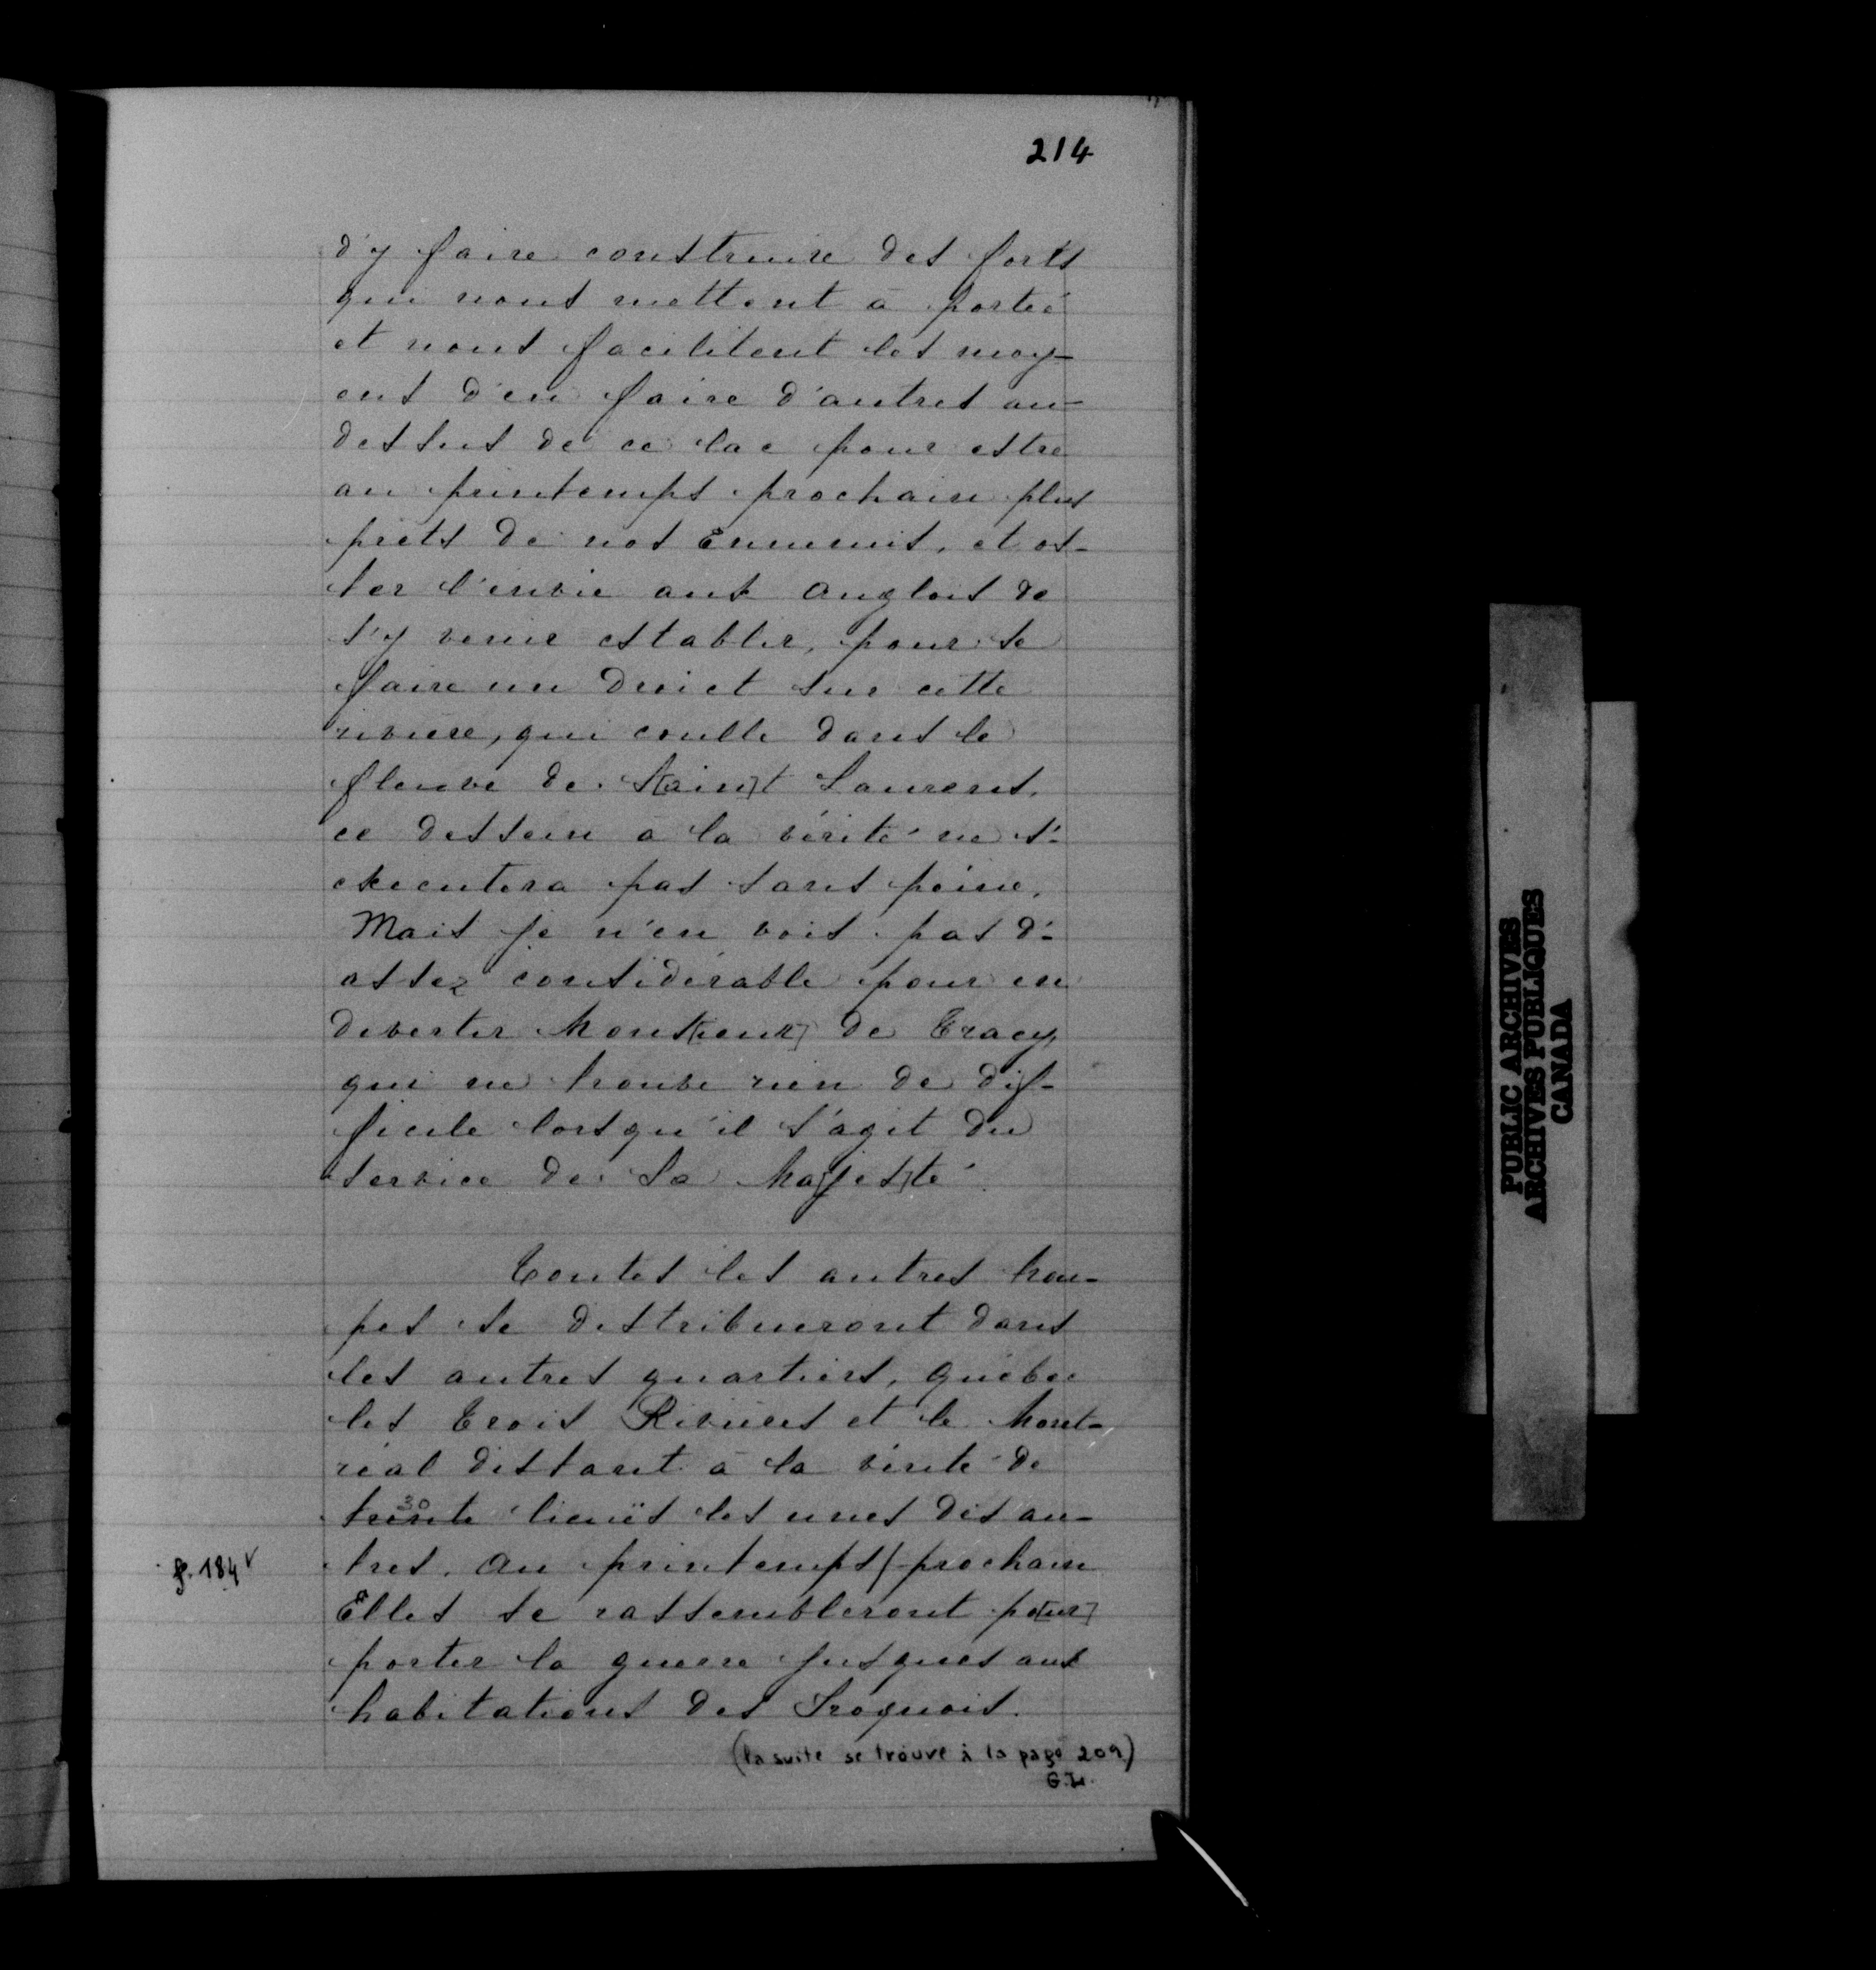 214
d'y faire construire des forts
qui nous mettent à porteé
et nous facilitent les moy-
ens d'en faire d'autres au-
dessus de ce lac pour estre
au printemps prochain plus
prets de nos Ennemis, et os-
ter l'envie aux anglois de
s'y venir establir, pour se
faire un Droict sur cette
riviere, qui coulle dans le
fleuve de S[ain]t Laurens,
ce dessein à la vérité ne s'-
executera pas sans peine,
Mais je n'en vois pas d'-
assez considérable pour en
divertir Mons[ieur] de Tracy,
qui ne trouve rien de dif-
ficile lorsqu'il s'agit du
service de Sa Ma[jes]té
Toutes les autres trou-
pes se distribueront dans
les autres quartiers, Québec
les Trois Rivieres et le Mont-
réal distant à la vérité de
30
trente lieuës les unes des au-
f. 184 v
tres. au printemps/prochain
Elles se rassembleront po[ur]
porter la guerre jusques aux
habitations des Iroquois.
(la suite se trouve à la page 209)
G.L.
PUBLIC ARCHIVES
ARCHIVES PUBLIQUES
CANADA